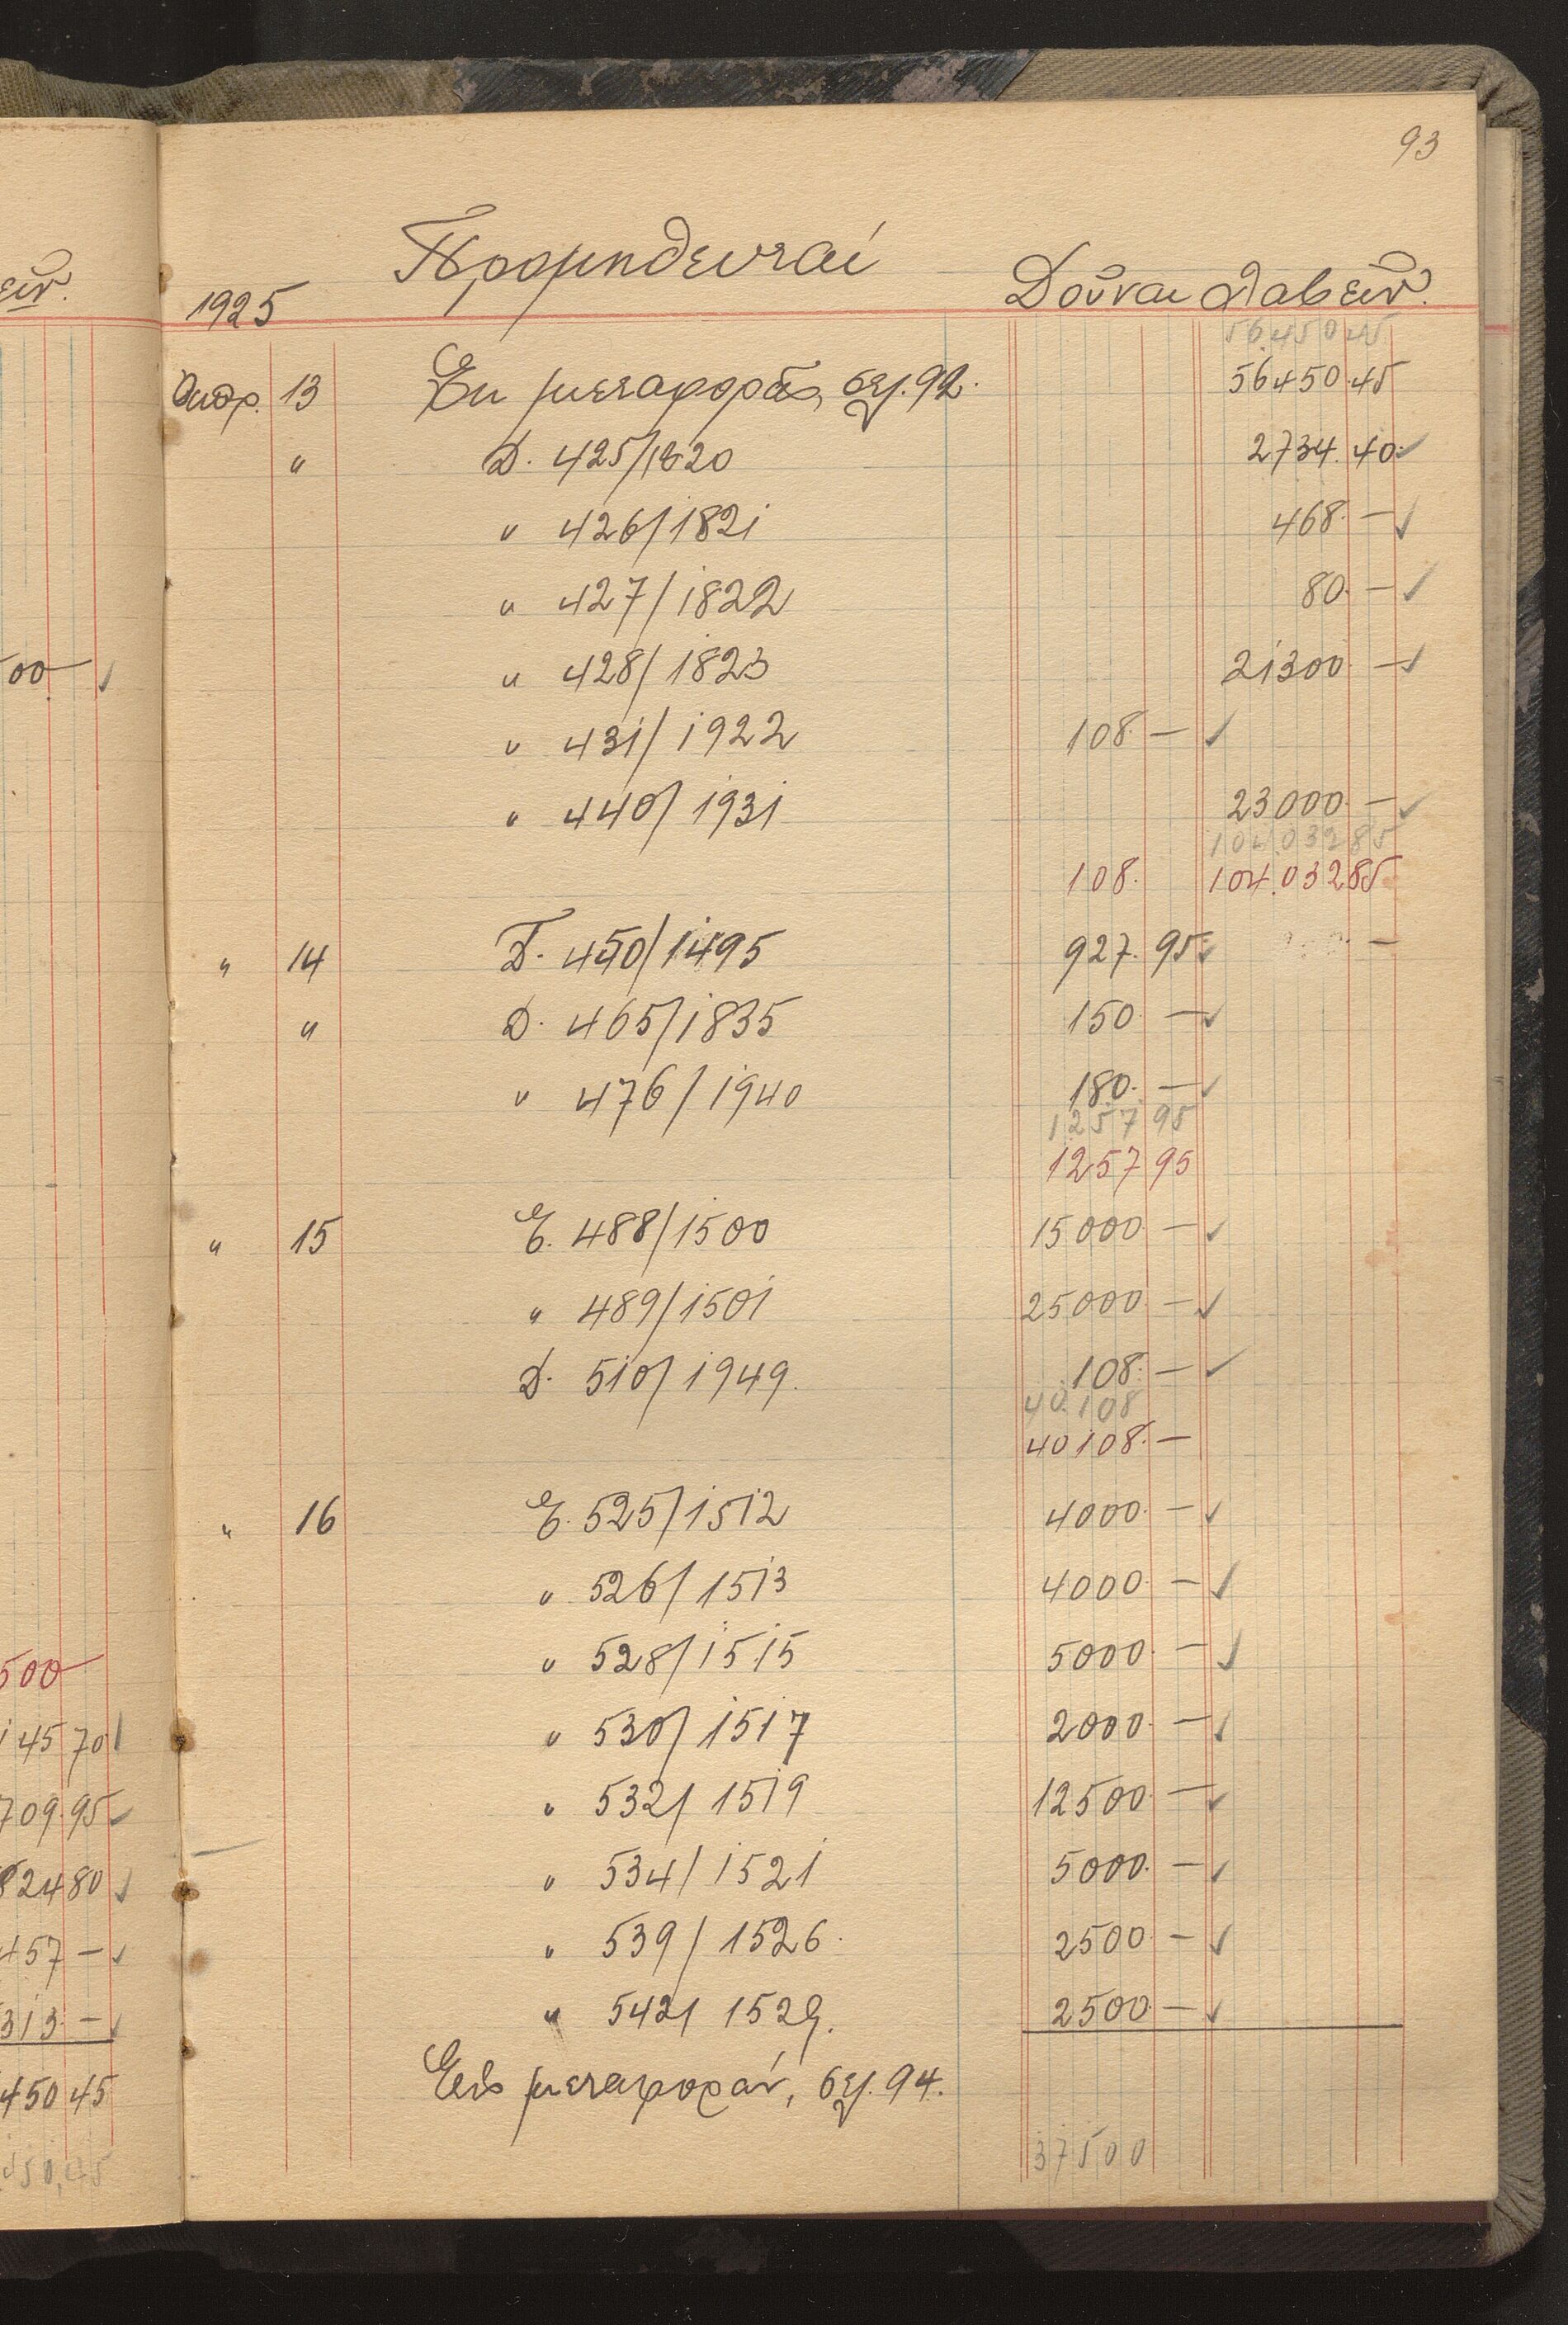 93
Προμηθευταί
1925 Δοῦναι Λαβεῖν.
56450 45
Οκτβρ. 13 Εκ μεταφορᾶς, σελ. 92. 56450.45
" Δ. 425/1820 2734.40
" 426/1821 468. —
" 427/1822 80. —
" 428/1823 21300. —
" 431/1922 108. —
" 440/1931 23000. —
104.032 85
108. 104.032 85
" 14 Τ. 450/1495 927.95
" Δ. 465/1835 150. —
" 476/1940 180. —
1257 95
1257 95
" 15 Ε. 488/1500 15000 —
" 489/1501 25000. —
Δ. 510/1949. 108. —
40.108
40108. —
" 16 Ε. 525/1512 4000. —
" 526/1513 4000. —
" 528/1515 5000. —
" 530/1517 2000. —
" 532/1519 12500. —
" 534/1521 5000. —
" 539/1526. 2500. —
" 542/1529. 2500. —
Εἰς μεταφοράν, σελ. 94.
37500
εῖν.
00 —
500 —
145 70
709.95
82480
457 —
313. —
450 45
450,45